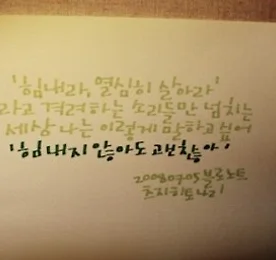 '힘내라, 열심히 살아라'
라고 격려하는 소리들만 넘치는
세상 나는 이렇게 말하고 싶어
'힘 내지 않아도 괜찮아'
블루노트